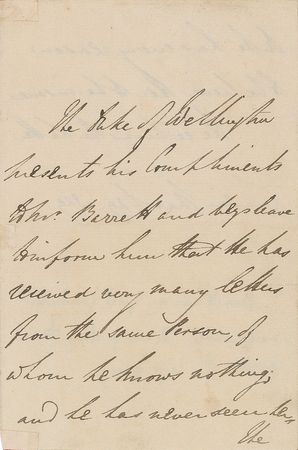 The Duke of Wellington
presents his Compliments
to Mr. Barrett and begs leave
to inform him that He has
received very many letters
from the same Person, of
whom he knows nothing;
and he has never seen her
The